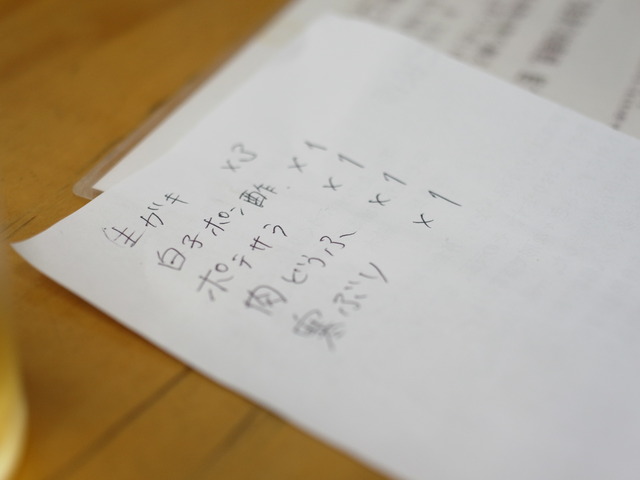 生ガキ ×3
白子ポン酢 ×1
ポテサラ ×1
肉どうふ ×1
寒ぶり ×1